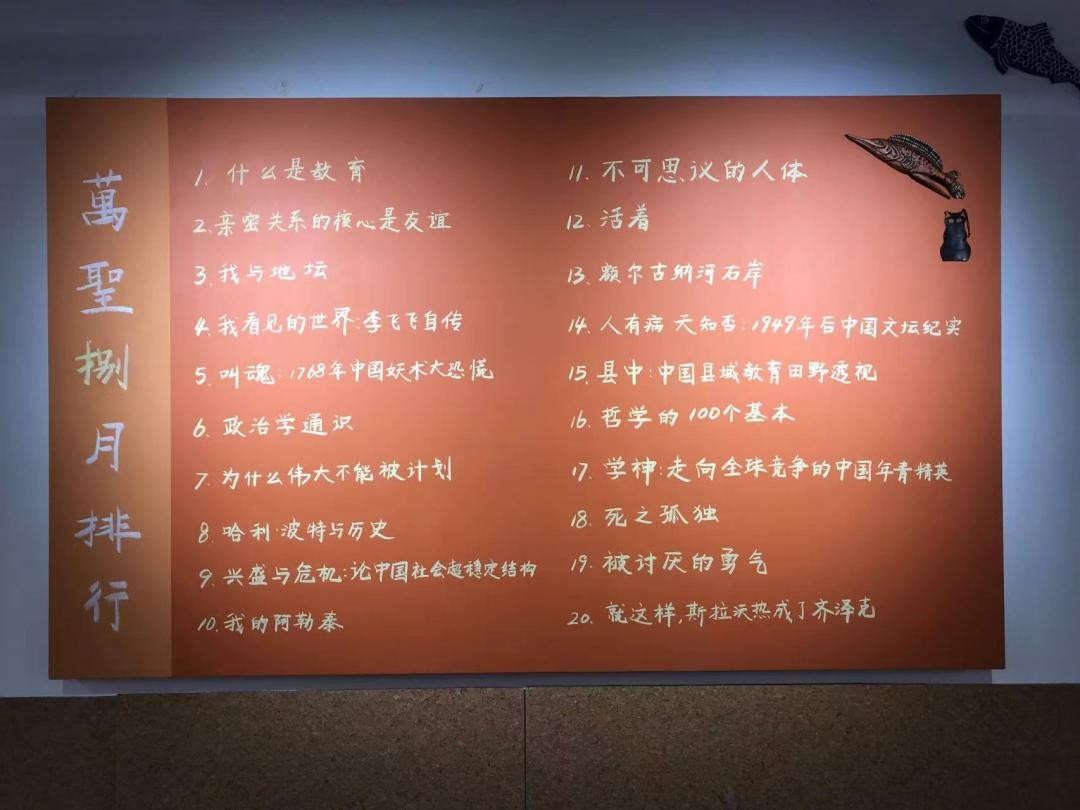 萬聖捌月排行
1. 什么是教育
2. 亲密关系的核心是友谊
3. 我与地坛
4. 我看见的世界:李飞飞自传
5. 叫魂:1768年中国妖术大恐慌
6. 政治学通识
7. 为什么伟大不能被计划
8. 哈利·波特与历史
9. 兴盛与危机:论中国社会超稳定结构
10. 我的阿勒泰
11. 不可思议的人体
12. 活着
13. 额尔古纳河右岸
14. 人有病 天知否:1949年后中国文坛纪实
15. 县中:中国县域教育田野透视
16. 哲学的100个基本
17. 学神:走向全球竞争的中国年青精英
18. 死之孤独
19. 被讨厌的勇气
20. 就这样,斯拉沃热成了齐泽克